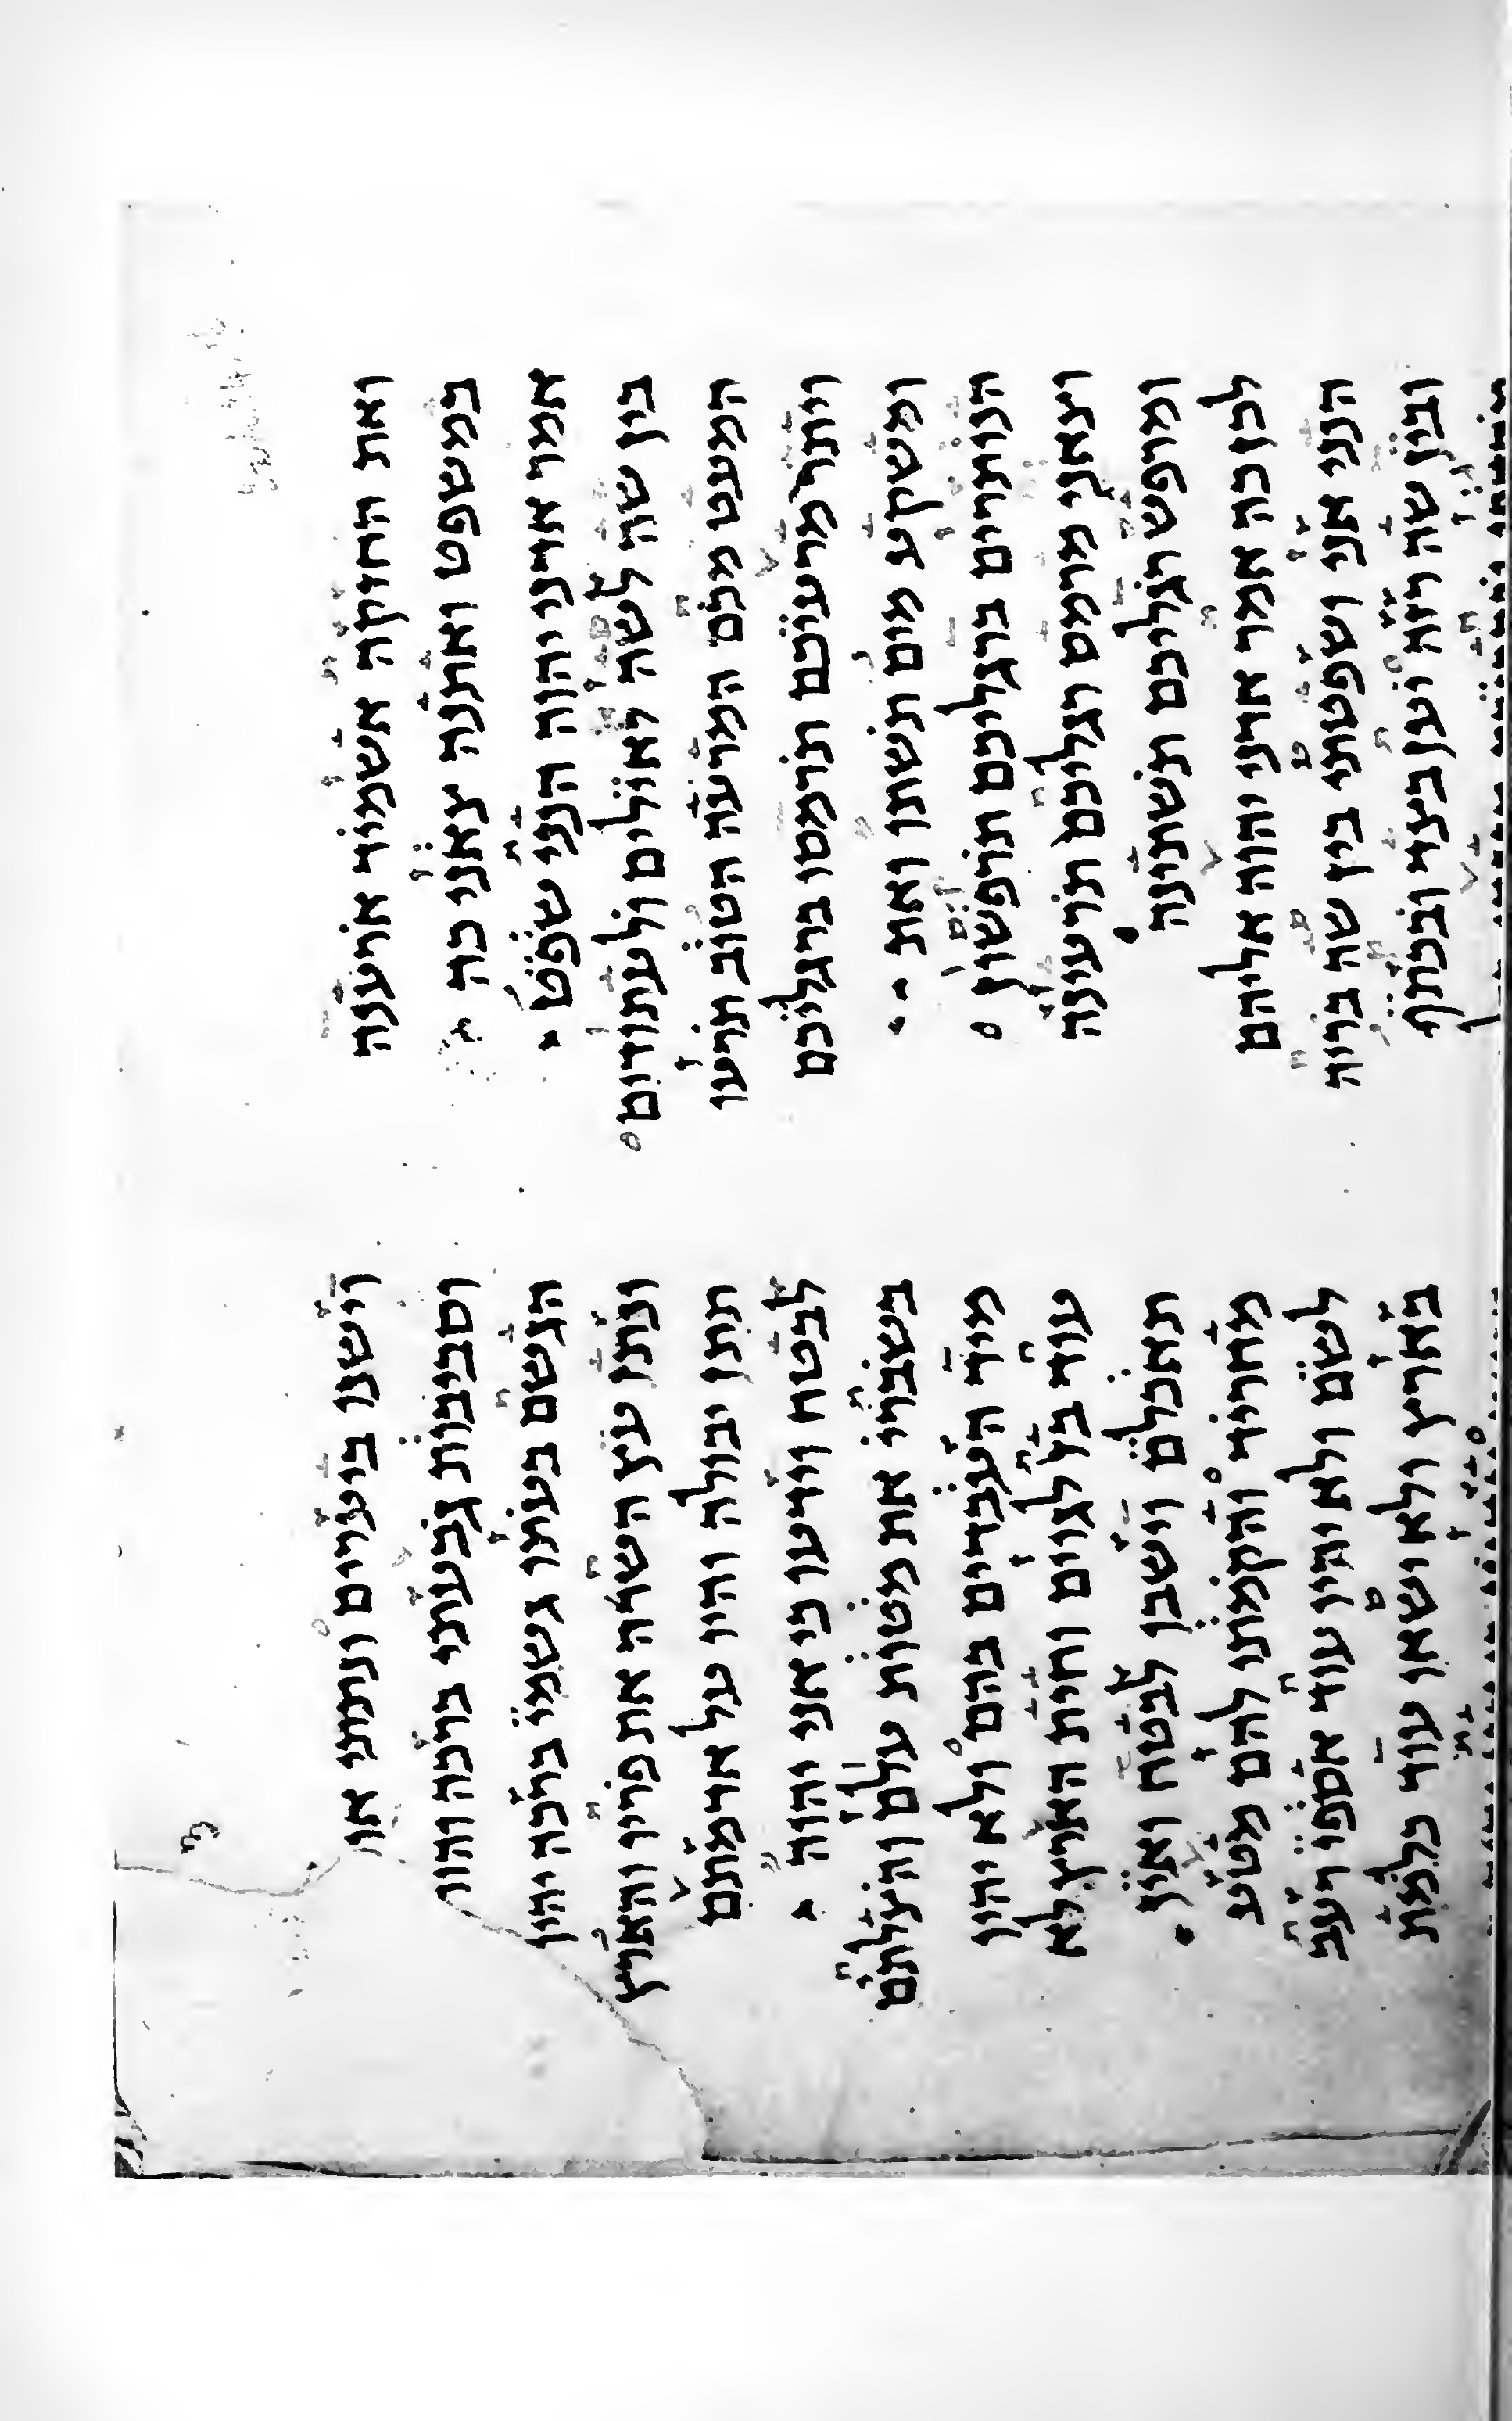 ואת החזקה אשמיד ארענה
במשפט ואתנה צאני כה
אמר אדני יהוה הנני שפט
בין שה לשה לאילים ולעתודים
המעט מכם המרעה הטוב תרעו
ויתר מרעיכם תרמסו ברגליכם
ומשקע מים תשתו ואת
הנותרים ברגליכם תרפשון
וצאני מרמס רגליכם תרעינה
ומרפש רגליכם תשתינה
לכן כה אמר אדני יהוה אליהם
הנני אני ושפטתי בין שה בריה
ובין שה רזה יען בצד ובכתף
וישבו ביערים ונתתי או
וסביבות גבעתי ברכה והור
הגשם בעתו גשמי ברכה יהיו
ונתן עץ השדה את פריו והארץ
תתן יבולה והיו על אדמתם
לבטח וידעו כי אני יהוה
בשברי את מטות עלם והצלתים
מיד העבדים בהם ולא יהיו
עוד בז לגוים וחית הארץ לא
תאכלם וישבו לבטח ואין
מחריד והקמתי להם מטע
לשם ולא יהיו עוד אספי רעב
בארץ ולא ישאו עוד כלמת